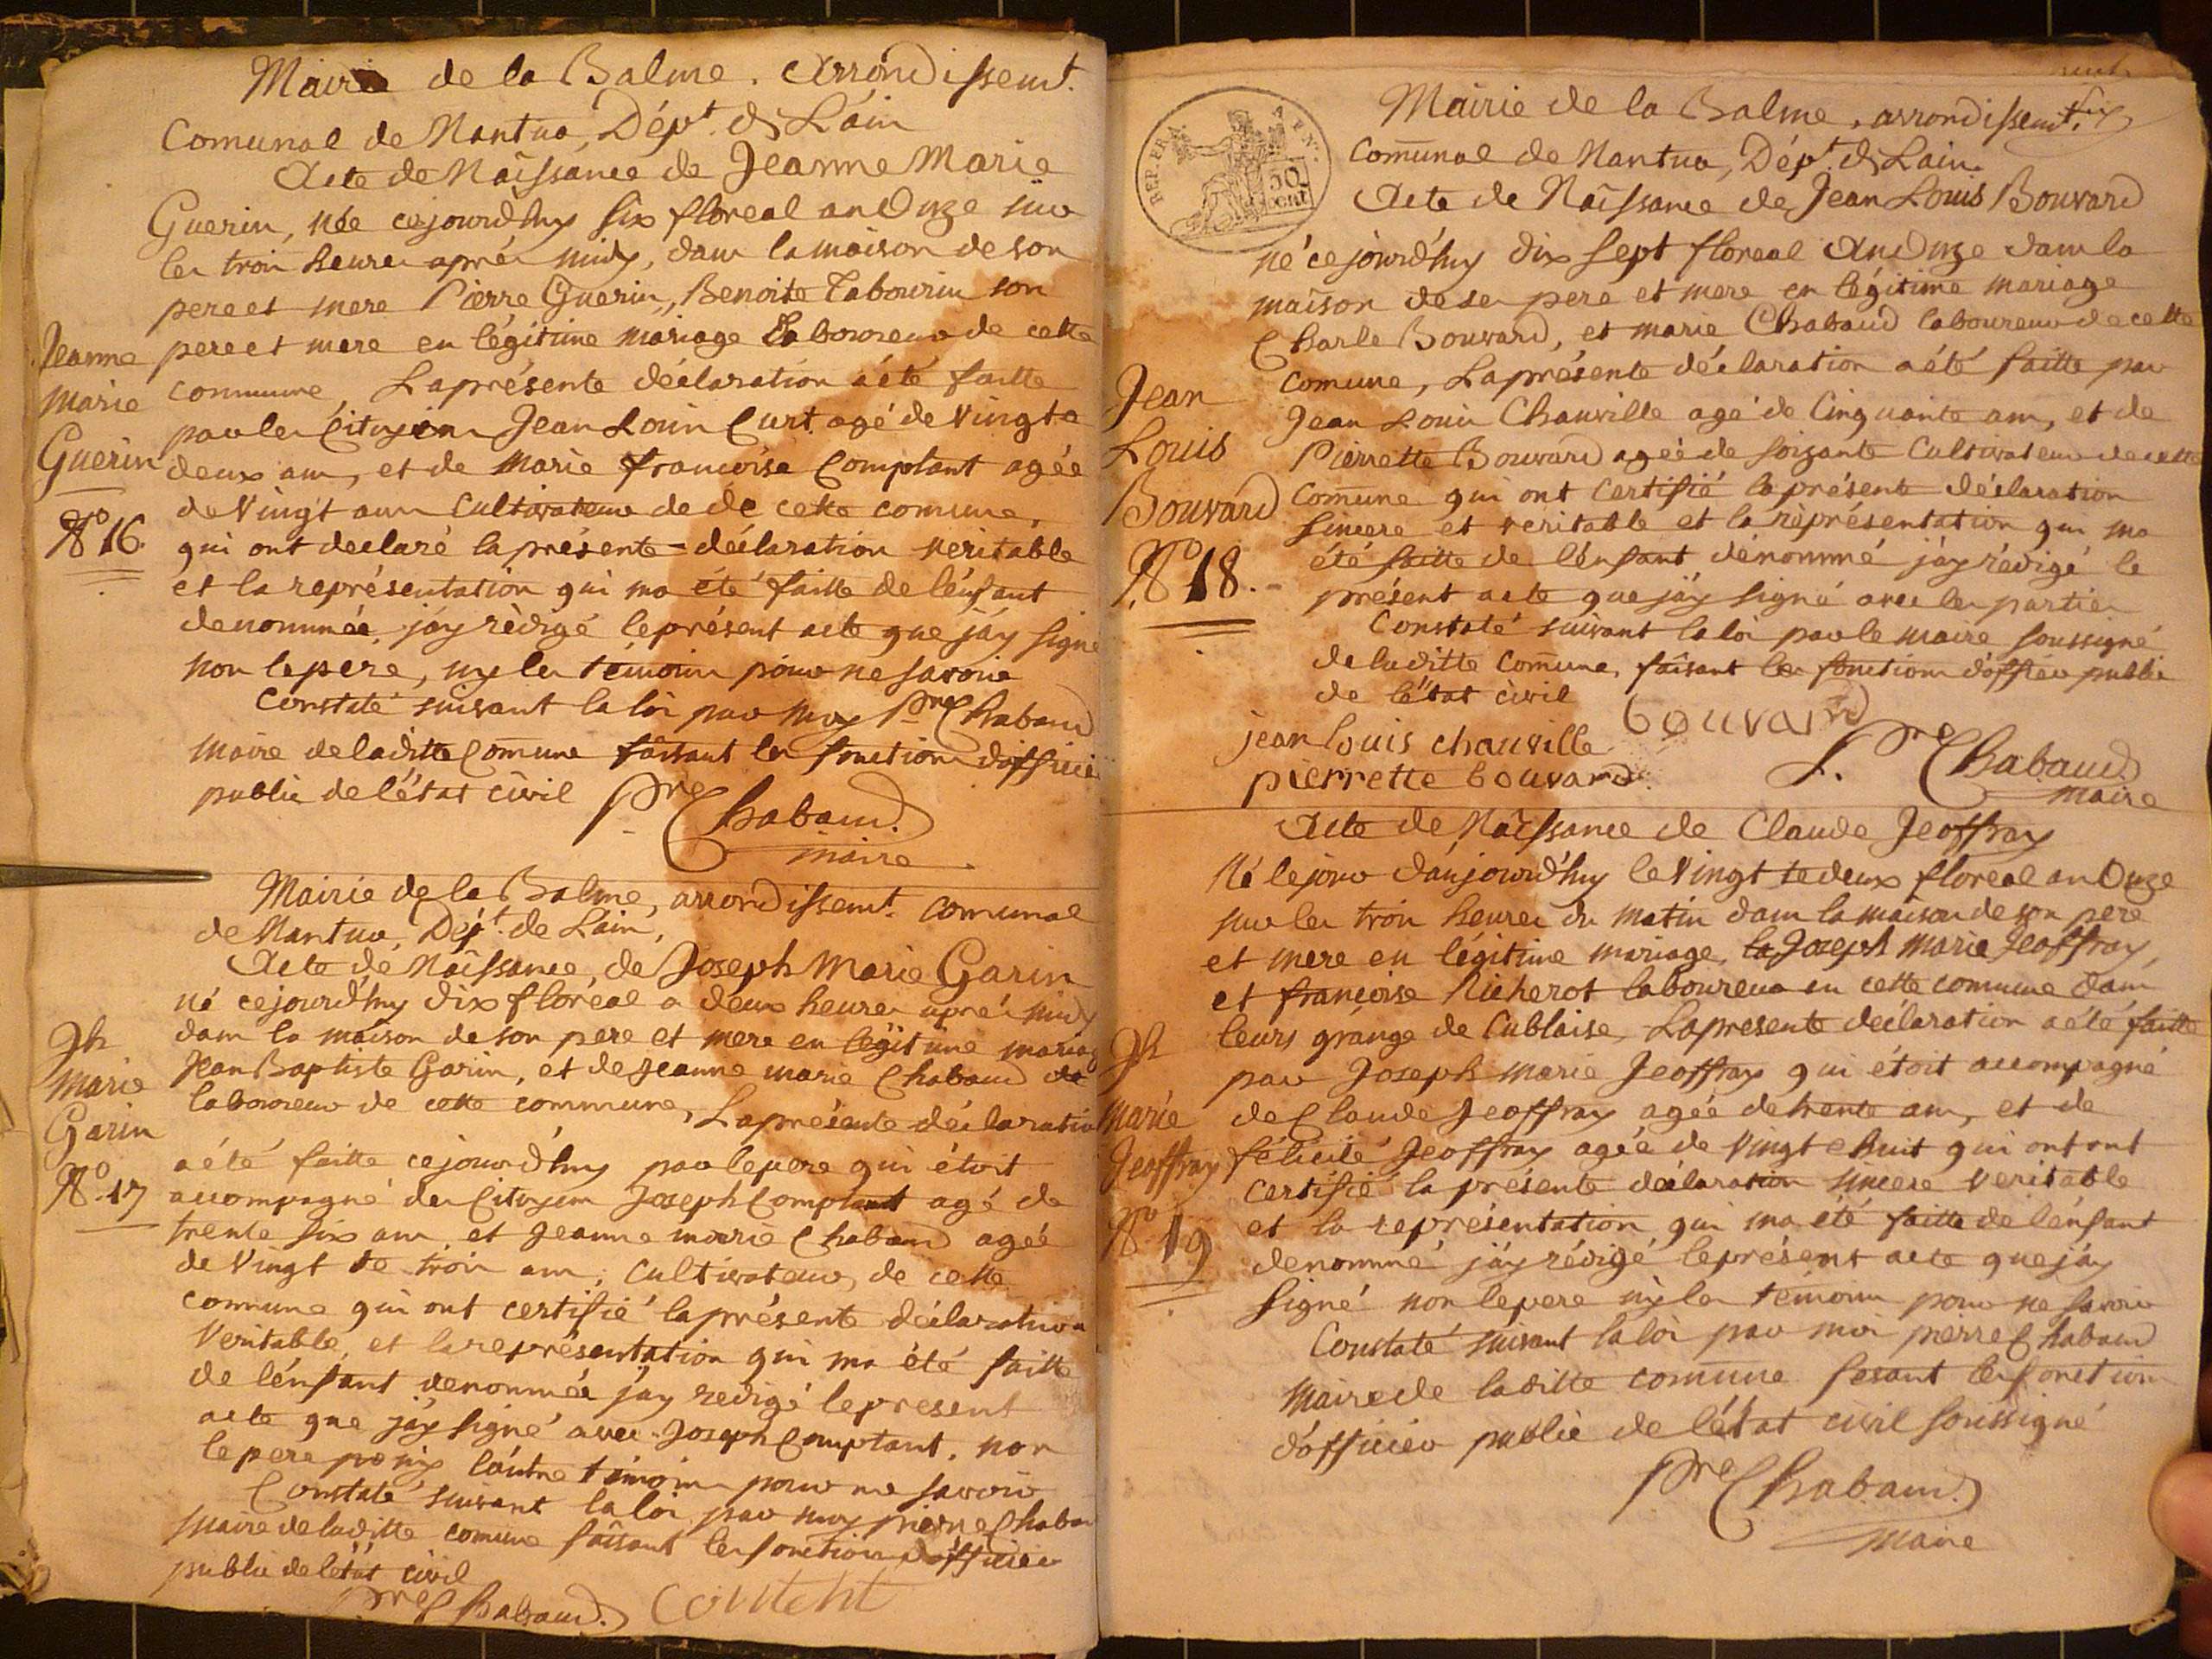 Mairie de la Balme. Arrondissemt.
Comunal de Nantua, Dépt. de Láin
Acte de Naîssance de Jeanne Marie
Guerin, née cejourd'huy six floreal an Onze sur
les trois heures aprés midy, dans la maison de son
pere et mere Pierre Guerin, Benoite Tabourin son
pere et mere en légitime mariage Laboureur de cette
commune, La présente déclaration a été faitte
par les Citoyens Jean Louis Curt agé de Vingt e
deux ans, et de Marie francoise Comptant agée
de Vingt ans Cultivateur de de cette comune,
qui ont declaré la présente déclaration veritable
et la représentation qui ma été faitte de lénfant
denommée, jáy rédigé le présent acte que jáy signé
non le pere, ny les témoins pour ne savoir
Constaté suivant la loi par moy Pre Chabaud
Maire de laditte Comune faisant les fonctions dofficier
public de létat civil
Pre Chabaud.
maire
Jeanne
Marie
Guerin
No 16.
Mairie de la Balme, arrondissemt. Comunal
de Nantua, Dépt. de Láin,
Acte de Naîssance, de Joseph Marie Garin
né cejourd'huy dix floréal a deux heures aprés midy
dans la maison de son pere et mere en légitime mariag
Jean Baptiste Garin, et de Jeanne marie Chabaud de
laboureur de cette commune, La présente déclaration
a été faitte cejourd'huy par le pere qui étoit
accompagné des Citoyens Joseph Comptant agé de
trente six ans, et Jeanne marie Chabaud agée
de Vingt te trois ans, Cultivateur, de cette
commune qui ont certifié la présente déclaration
Veritable, et la représentation qui ma été faitte
de lénfant denommée jáy redigé le present
acte que jáy signé avec Joseph Comptant, non
le pere ny láutre témoin pour ne savoir
Constaté suivant la loi par moy pierre Chabau
Maire de laditte comune faisant les fonctions dofficier
public de létat civil
Pre Chabaud. Content
Jh
Marie
Garin
No. 17
Mairie de la Balme, arrondissemt.
Comunal de Nantua, Dépt. de Lain.
Acte de Naîssance de Jean Louis Bouvard
né cejourd'huy dix sept floreal An Onze dans la
maison de ses pere et mere en légitime mariage
Charle Bouvard, et marie Chabaud laboureur de cette
Comune, La présente déclaration a été faitte par
Jean Louis Chauville agé de Cinquante ans, et de
Pierrette Bouvard agée de soizante Cultivateur de cette
Comune qui ont certifié la présente déclaration
sincere et veritable et la réprésentation qui ma
été faitte de lénfant, dénommé jáy rédigé le
présent acte que jáy signé avec les parties
Constaté suivant la loi par le maire soussigné
de laditte Comune, faisant les fonctions dofficier public
de létat civil
bouvard
jean louis chauville
pierrette bouvard.
P.re Chabaud
maire
Jean
Louis
Bouvard
No 18.
REP. FRA.
50
cent
Acte de Naîssance de Claude Jeoffray
Né le jour d'aujourd'huy le Vingt te deux floreal an Onze
sur les trois heures du matin dans la maison de son pere
et mere en légitime mariage, la Joseph Marie Jeoffray,
et françoise Nicherot laboureur en cette commune dans
leurs grange de Cublaise, La presente déclaration a été faitte
par Joseph marie Jeoffray qui étoit accompagné
de Claude Jeoffray agée de trente ans, et de
félicité Jeoffray agée de Vingt e huit qui ont ont
certifié la présente déclaration sincere veritable
et la représentation qui ma été faitte de lénfant
denommé jáy rédigé le présent acte que jáy
signé non le pere ny les témoins pour ne savoir
Constaté suivant la loi par moi pierre Chabaud
Maire de laditte comune fesant les fonctions
dofficier public de létat civil soussigné
Pre Chabaud.
Maire
Jh
Marie
Jeoffray
No 19